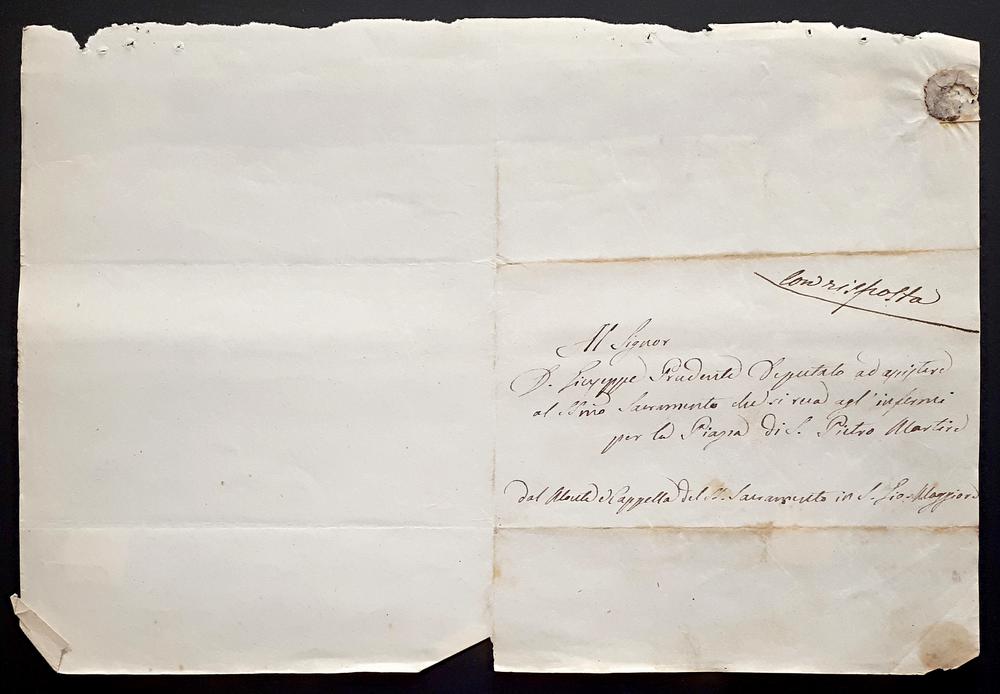 Con risposta
Al Signor
D. Giuseppe Prudente Deputato ad assistere
al SSmo Sacramento che si reca agl' infermi
per la Piazza di S. Pietro Martire
dal Monte e Cappella del SS. Sacramento in S. Gio. Maggiore